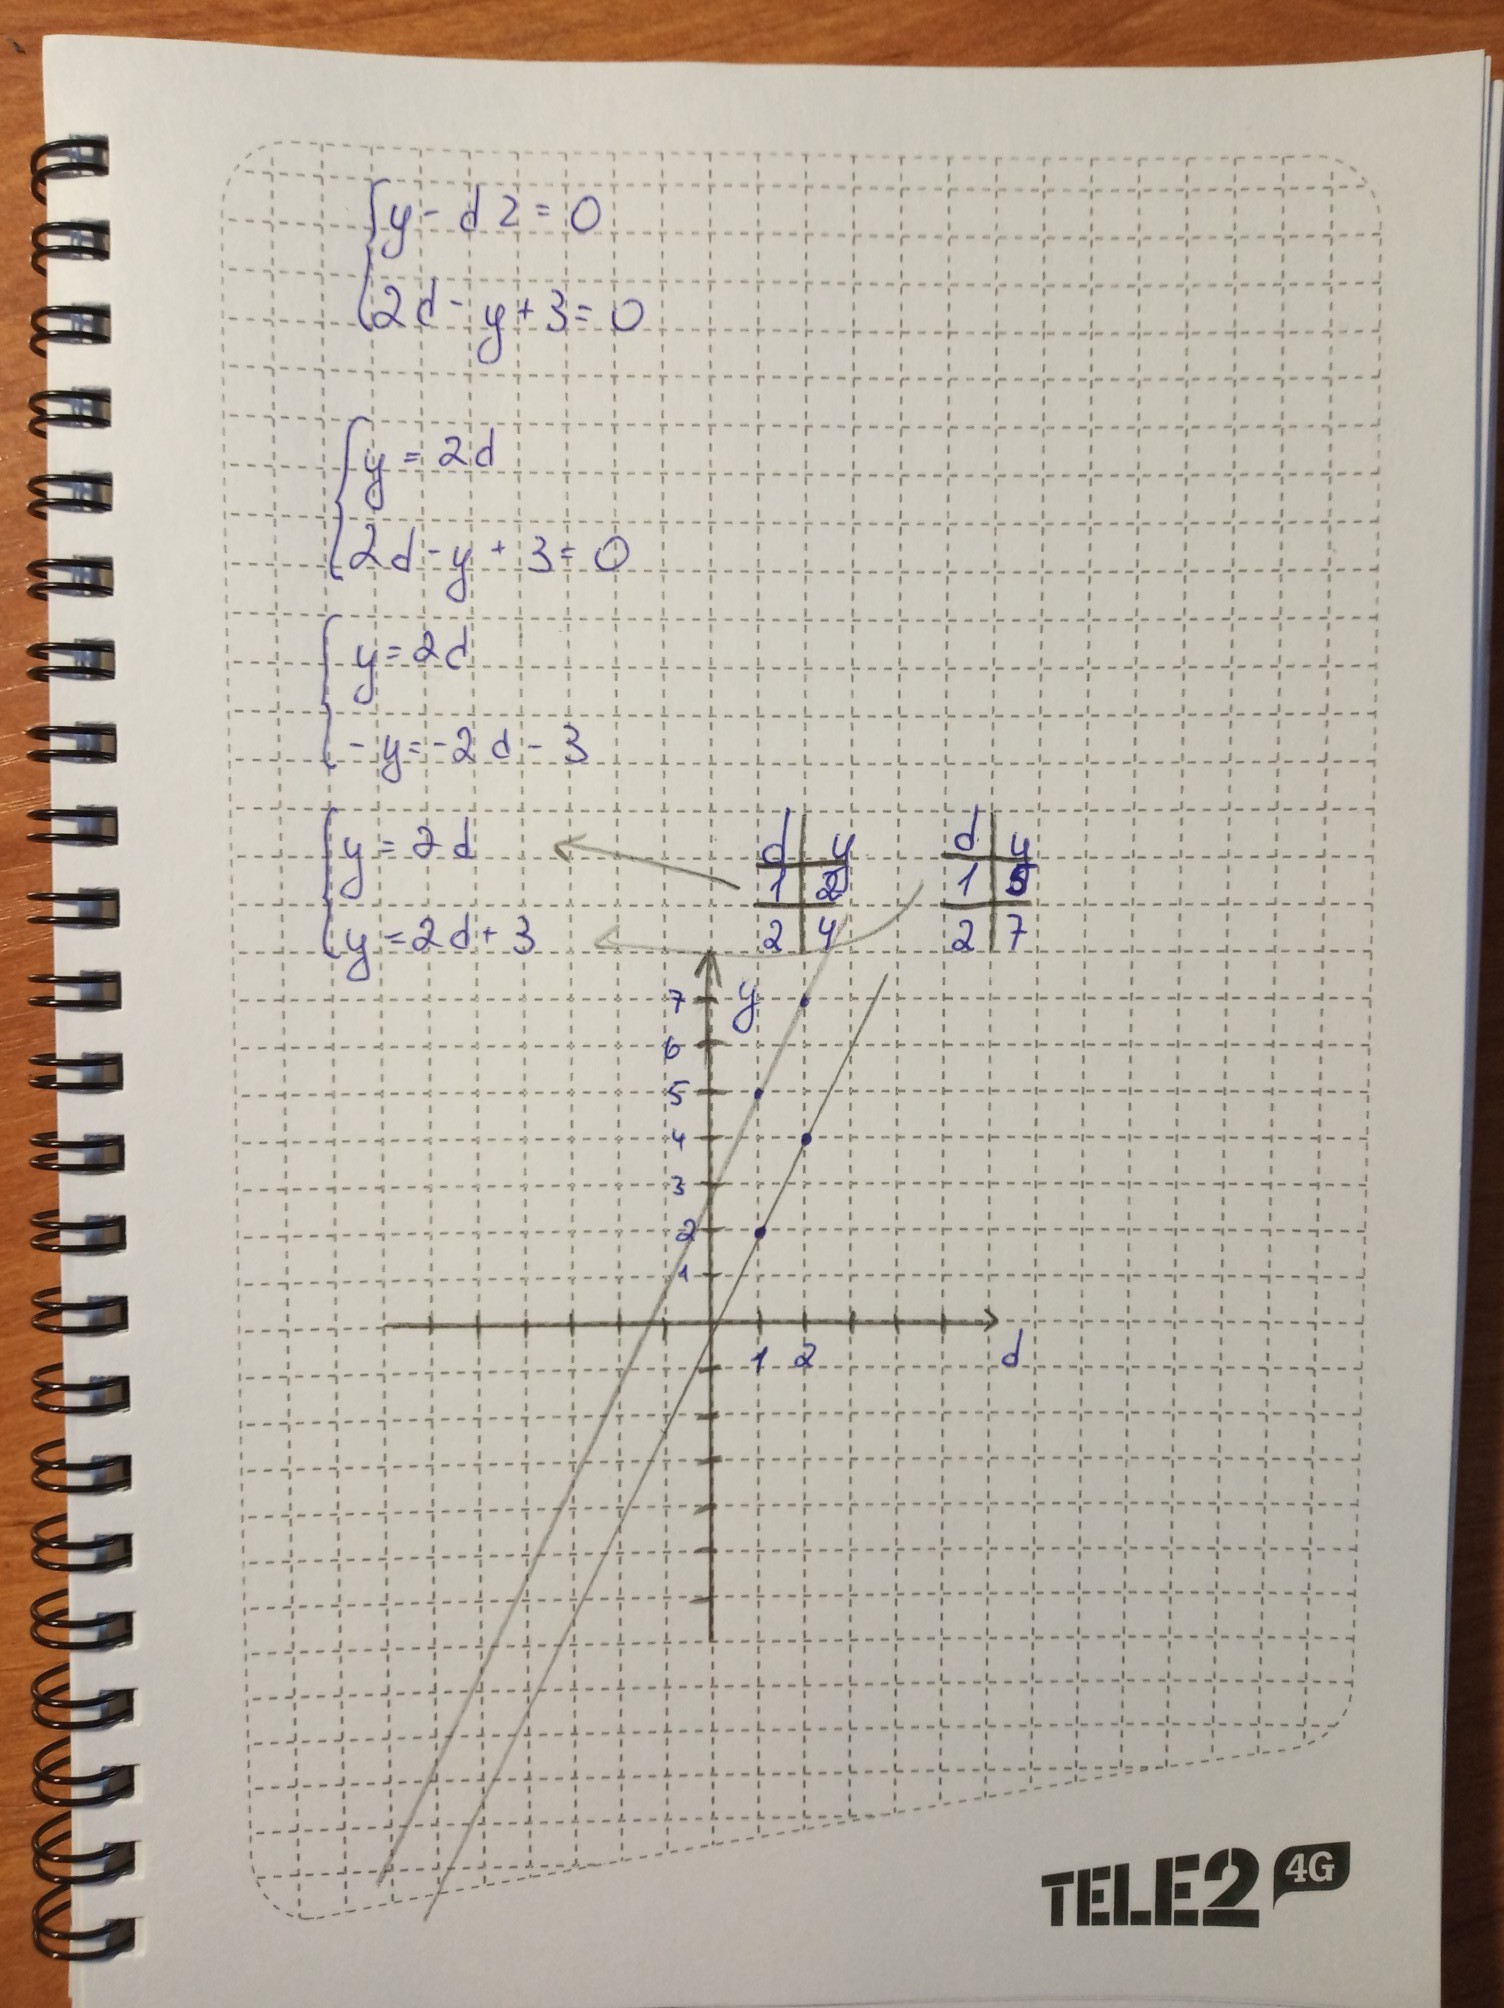 y - d2 = 0
2d - y + 3 = 0
y = 2d
2d - y + 3 = 0
y = 2d
- y = -2d - 3
y = 2d
y = 2d + 3
d y
1 2
2 4
d y
1 5
2 7
y
7
6
5
4
3
2
1
1 2 d
TELE2 4G